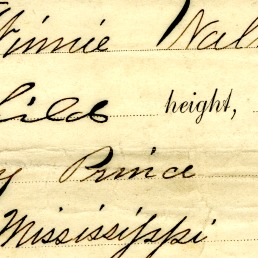 Winnie
Child height,
Prince
Mississippi